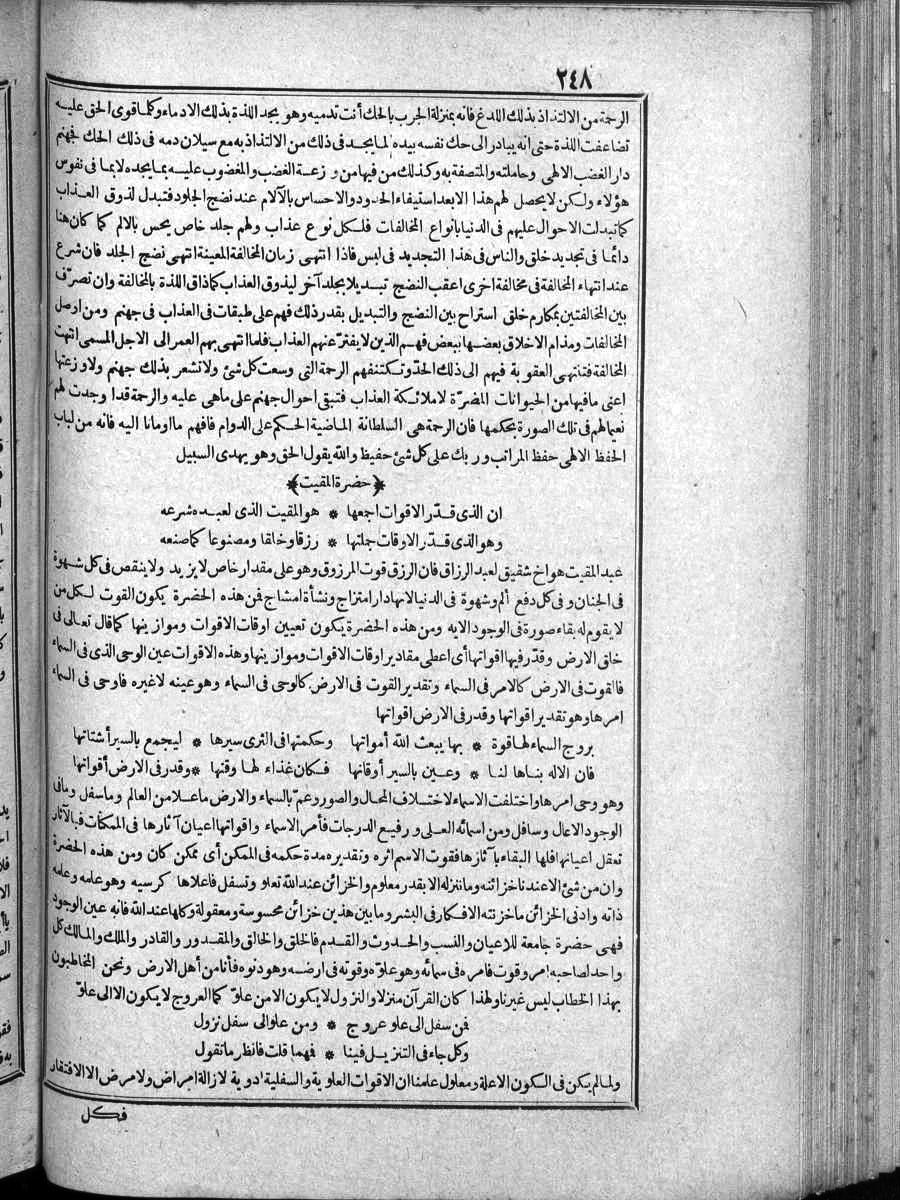 ٢٤٨
الرحمة من الالتذاذ بذلك اللدغ فانه بمنزلة الجرب بالحك أنت تدميه وهو يجد اللذة بذلك الادماء وكلما قوى الحك عليه
تضاعفت اللذة حتى انه يبادر الى حك نفسه بيده لما يجد فى ذلك من الالتذاذ به مع سيلان دمه فى ذلك الحك فجهنم
دار الغضب الالهى وحاملته والمتصفة به وكذلك من فيها من وزعة الغضب والمغضوب عليه بما يجده لا بما فى نفوس
هؤلاء ولكن لا يحصل لهم هذا الا بعد استيفاء الحدود والاحساس بالآلام عند نضج الجلود فتبدل لذوق العذاب
كما تبدلت الاحوال عليهم فى الدنيا بانواع المخالفات فلكل نوع عذاب ولهم جلد خاص يحس بالالم كما كان هنا
دائما فى تجديد خلق والناس فى هذا التجديد فى لبس فاذا انتهى زمان المخالفة المعينة انتهى نضج الجلد فان شرع
عند انتهاء المخالفة فى مخالفة اخرى اعقب النضج تبديلا بجلد آخر ليذوق العذاب كما ذاق اللذة بالمخالفة وان تصرّف
بين المخالفتين بمكارم خلق استراح بين النضج والتبديل بقدر ذلك فهم على طبقات فى العذاب فى جهنم ومن اوصل
المخالفات ومذام الاخلاق بعضها ببعض فهم الذين لا يفتر عنهم العذاب فلما انتهى بهم العمر الى الاجل المسمى انتهت
المخالفة فتنتهى العقوبة فيهم الى ذلك الحدّ وتكتنفهم الرحمة التى وسعت كل شئ ولا تشعر بذلك جهنم ولا وزعتها
اعنى ما فيها من الحيوانات المضرّة لا ملائكة العذاب فتبقى احوال جهنم على ماهى عليه والرحمة قد اوجدت لهم
نعيما لهم فى تلك الصورة بحكمها فان الرحمة هى السلطانة الماضية الحكم على الدوام فافهم ما اومانا اليه فانه من لباب
الحفظ الالهى حفظ المراتب وربك على كل شئ حفيظ والله يقول الحق وهو يهدى السبيل
﴿حضرة المقيت﴾
ان الذى قدّر الاقوات اجمعها * هو المقيت الذى لعبده شرعه
وهو الذى قدّر الاوقات جملتها * رزقا وخلقا ومصنوعا كما صنعه
عبد المقيت هو اخ شقيق لعبد الرزاق فان الرزق قوت المرزوق وهو على مقدار خاص لا يزيد ولا ينقص فى كل شهوة
فى الجنان وفى كل دفع ألم وشهوة فى الدنيا لانها دار امتزاج ونشأة امشاج فمن هذه الحضرة يكون القوت لكل من
لا يقوم له بقاء صورة فى الوجود الا به ومن هذه الحضرة يكون تعيين اوقات الاقوات وموازينها كما قال تعالى فى
خلق الارض وقدّر فيها اقواتها أى اعطى مقادير اوقات الاقوات وموازينها وهذه الاقوات عين الوحى الذى فى السماء
فالقوت فى الارض كالامر فى السماء وتقدير القوت فى الارض كالوحى فى السماء وهو عينه لا غيره فاوحى فى السماء
امرها وهو تقدير اقواتها وقدر فى الارض اقواتها
بروج السماء لها قوة * بها يبعث الله أمواتها وحكمتها فى الثرى سيرها * ليجمع بالسير أشتاتها
فان الاله بناها لنا * وعين بالسير أوقاتها فكان غذاء لها وقتها * وقدر فى الارض أقواتها
وهو وحى امرها واختلفت الاسماء لاختلاف المحال والصور وعمّ بالسماء والارض ما علا من العالم وما سفل وما فى
الوجود الا عال وسافل ومن اسمائه العلى ورفيع الدرجات فأمر الاسماء واقواتها اعيان آثارها فى الممكنات فبالآثار
تعقل اعيانها فلها البقاء بآثارها فقوت الاسم اثره وتقديره مدة حكمه فى الممكن أى ممكن كان ومن هذه الحضرة
وان من شئ الا عندنا خزائنه وما ننزله الا بقدر معلوم والخزائن عند الله تعلو وتسفل فاعلاها كرسيه وهو علمه وعلمه
ذاته وادنى الخزائن ما خزنته الافكار فى البشر وما بين هذين خزائن محسوسة ومعقولة وكلها عند الله فانه عين الوجود
فهى حضرة جامعة للاعيان والنسب والحدوث والقدم فالخلق والخالق والمقدور والقادر والملك والمالك كل
واحد لصاحبه امر وقوت فامره فى سمائه وهو علوّه وقوته فى ارضه وهو دنوه فأنا من أهل الارض ونحن المخاطبون
بهذا الخطاب ليس غيرنا ولهذا كان القرآن منزلا والنزول لا يكون الا من علوّ كما العروج لا يكون الا الى علوّ
فمن سفل الى علو عروج * ومن علو الى سفل نزول
وكل جاء فى التنزيل فينا * فهما قلت فانظر ما تقول
ولما لم يكن فى الكون الا علة ومعلول علمنا ان الاقوات العلوية والسفلية ادوية لازالة امراض ولا مرض الا الافتقار
فكل